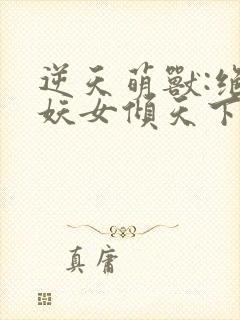 逆天萌獸:
妖女傾天下
真庸